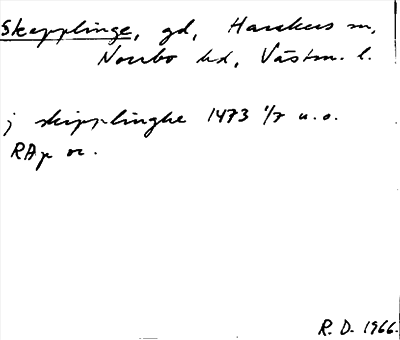 Skepplinge, gd, Haraker sn,
Norrbo hd, Västm. l.
j skipplinghe 1473 1/7 u.o.
RAp or.
R. D. 1966.